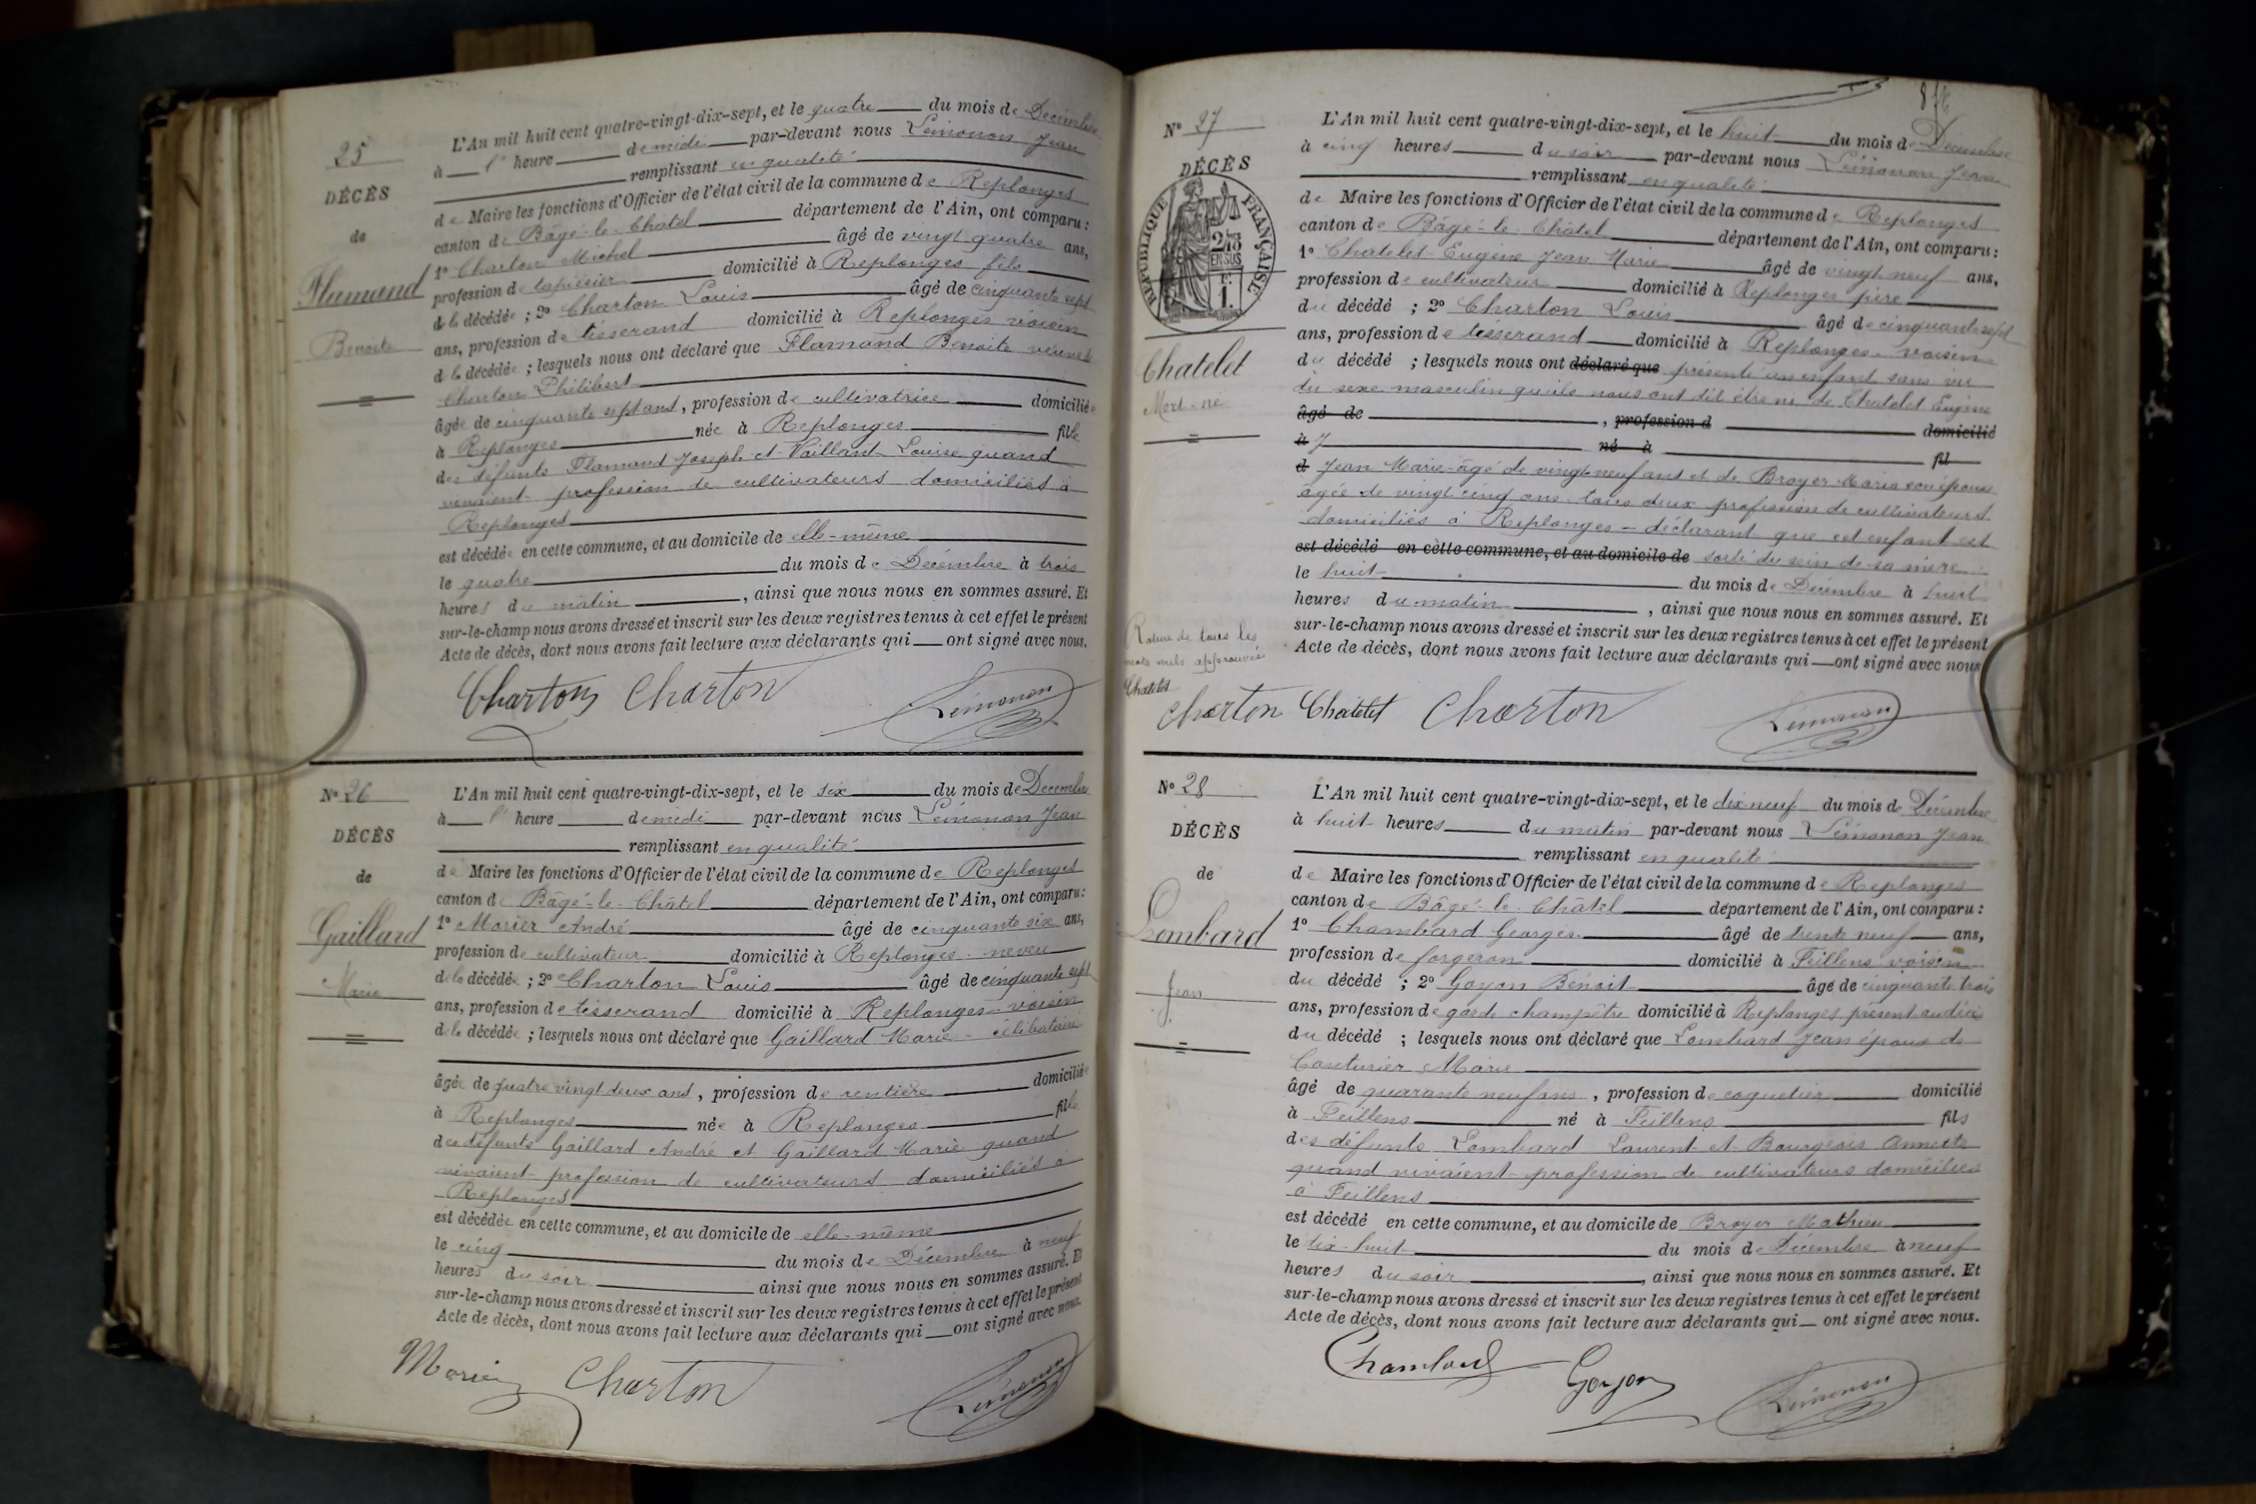 25
DÉCÈS
de
Flamand
Benoite
L'An mil huit cent quatre-vingt-dix-sept, et le quatre du mois de Décembre
à l' heure de midi par-devant nous Lémonon Jean
remplissant en qualité
de Maire les fonctions d'Officier de l'état civil de la commune de Replonges
canton de Bâgé-le-Châtel département de l'Ain, ont comparu :
1° Charton Michel âgé de vingt quatre ans,
profession de tapissier domicilié à Replonges fils
de la décédée ; 2° Charton Louis âgé de cinquante sept
ans, profession de tisserand domicilié à Replonges voisin
de la décédée ; lesquels nous ont déclaré que Flamand Benoite veuve de
Charton Philibert
âgée de cinquante sept ans, profession de cultivatrice domiciliée
à Replonges née à Replonges fille
des défunts Flamand Joseph et Vaillant Louise quand
vivaient profession de cultivateurs domiciliés à
Replonges
est décédée en cette commune, et au domicile de elle-même
le quatre du mois de Décembre à trois
heures du matin, ainsi que nous nous en sommes assuré. Et
sur-le-champ nous avons dressé et inscrit sur les deux registres tenus à cet effet le présent
Acte de décès, dont nous avons fait lecture aux déclarants qui ont signé avec nous.
Charton Charton Lémonon
N° 26
DÉCÈS
de
Gaillard
Marie
L'An mil huit cent quatre-vingt-dix-sept, et le six du mois de Décembre
à l' heure de midi par-devant nous Lémonon Jean
remplissant en qualité
de Maire les fonctions d'Officier de l'état civil de la commune de Replonges
canton de Bâgé-le-Châtel département de l'Ain, ont comparu :
1° Morier André âgé de cinquante six ans,
profession de cultivateur domicilié à Replonges neveu
de la décédée ; 2° Charton Louis âgé de cinquante sept
ans, profession de tisserand domicilié à Replonges voisin
de la décédée ; lesquels nous ont déclaré que Gaillard Marie célibataire
âgée de quatre vingt deux ans, profession de rentière domiciliée
à Replonges née à Replonges fille
des défunts Gaillard André et Gaillard Marie quand
vivaient profession de cultivateurs domiciliés à
Replonges
est décédée en cette commune, et au domicile de elle-même
le cinq du mois de Décembre à neuf
heures du soir ainsi que nous nous en sommes assuré. Et
sur-le-champ nous avons dressé et inscrit sur les deux registres tenus à cet effet le présent
Acte de décès, dont nous avons fait lecture aux déclarants qui ont signé avec nous.
Morier Charton Lémonon
N° 27
DÉCÈS
RÉPUBLIQUE FRANÇAISE
2/10 EN SUS
Chatelet
Mort-né
L'An mil huit cent quatre-vingt-dix-sept, et le huit du mois de Décembre
à cinq heures du soir par-devant nous Lémonon Jean
remplissant en qualité
de Maire les fonctions d'Officier de l'état civil de la commune de Replonges
canton de Bâgé-le-Châtel département de l'Ain, ont comparu :
1° Chatelet Eugène Jean Marie âgé de vingt neuf ans,
profession de cultivateur domicilié à Replonges père
du décédé ; 2° Charton Louis âgé de cinquante sept
ans, profession de tisserand domicilié à Replonges voisin
du décédé ; lesquels nous ont déclaré que présenté un enfant sans vie
du sexe masculin qu'ils nous ont dit être né de Chatelet Eugène
âgé de , profession d domicilié
à né à fil
d Jean Marie âgé de vingt neuf ans et de Broyer Maria son épouse
âgée de vingt cinq ans tous deux profession de cultivateurs
domiciliés à Replonges - déclarant que cet enfant est
est décédé en cette commune, et au domicile de sorti du sein de sa mère
le huit du mois de Décembre à huit
heures du matin, ainsi que nous nous en sommes assuré. Et
sur-le-champ nous avons dressé et inscrit sur les deux registres tenus à cet effet le présent
Acte de décès, dont nous avons fait lecture aux déclarants qui ont signé avec nous
Rature de tous les
mots nuls approuvée
Chatelet
Charton Chatelet Charton Lémonon
N° 28
DÉCÈS
de
Lombard
Jean
L'An mil huit cent quatre-vingt-dix-sept, et le dix neuf du mois de Décembre
à huit heures du matin par-devant nous Lémonon Jean
remplissant en qualité
de Maire les fonctions d'Officier de l'état civil de la commune de Replonges
canton de Bâgé-le-Châtel département de l'Ain, ont comparu :
1° Chambard Georges âgé de trente neuf ans,
profession de forgeron domicilié à Feillens voisin
du décédé ; 2° Goyon Benoit âgé de cinquante trois
ans, profession de garde champêtre domicilié à Replonges présent au décès
du décédé ; lesquels nous ont déclaré que Lombard Jean époux de
Couturier Marie
âgé de quarante neuf ans, profession de coquetier domicilié
à Feillens né à Feillens fils
des défunts Lombard Laurent et Bourgeois Annette
quand vivaient profession de cultivateurs domiciliés
à Feillens
est décédé en cette commune, et au domicile de Broyer Mathieu
le dix-huit du mois de Décembre à neuf
heures du soir, ainsi que nous nous en sommes assuré. Et
sur-le-champ nous avons dressé et inscrit sur les deux registres tenus à cet effet le présent
Acte de décès, dont nous avons fait lecture aux déclarants qui ont signé avec nous.
Chambard Goyon Lémonon